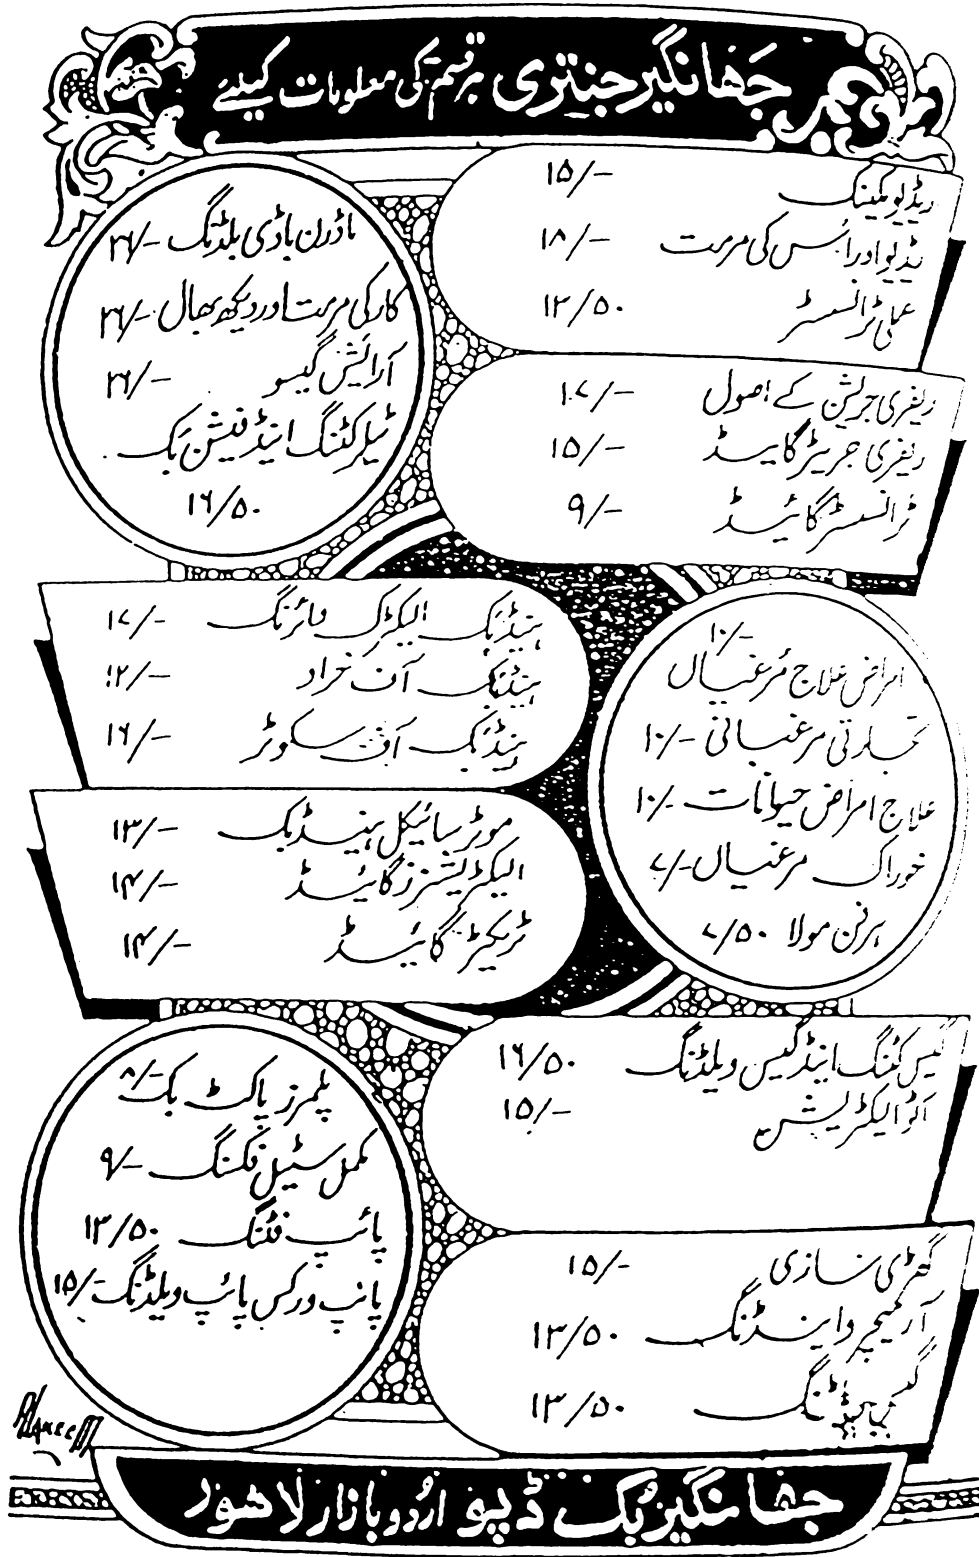 جہانگیر جنتری ہر قسم کی معلومات کیلئے
ریڈیو مکینک ۱۵/-
ریڈیو اور اُس کی مرمت ۱۸/-
عملی ٹرانسسٹر ۱۲/۵۰
ماڈرن باڈی بلڈنگ ۲۶/-
کار کی مرمت اور دیکھ بھال ۲۶/-
آرائش گیسو ۲۶/-
ٹیلر کٹنگ اینڈ فیشن بک
۱۶/۵۰
ریفری جریشن کے اصول ۱۷/-
ریفری جریٹر گائیڈ ۱۵/-
ٹرانسسٹر گائیڈ ۹/-
ہینڈبک الیکٹرک وائرنگ ۱۷/-
ہینڈبک آف خراد ۱۲/-
ہینڈبک آف سکوٹر ۱۶/-
۱۰/-
امراض علاج مُرغیاں
تجارتی مرغبانی ۱۰/-
علاج امراض حیوانات ۱۰/-
خوراک مرغیاں ۷/-
ہرفن مولا ۷/۵۰
موٹر سائیکل ہینڈبک ۱۳/-
الیکٹریشنز گائیڈ ۱۴/-
ٹریکٹر گائیڈ ۱۴/-
گیس کٹنگ اینڈ گیس ویلڈنگ ۱۶/۵۰
آٹو الیکٹریشن ۱۵/-
پلمرز پاکٹ بک ۸/-
مکمل سٹیل فکسنگ ۹/-
پائپ فٹنگ ۱۳/۵۰
پائپ ورکس پائپ ویلڈنگ ۱۵/-
گھڑی سازی ۱۵/-
آرمیچر وائنڈنگ ۱۳/۵۰
گیس ویلڈنگ ۱۳/۵۰
جہانگیر بک ڈپو اردو بازار لاہور